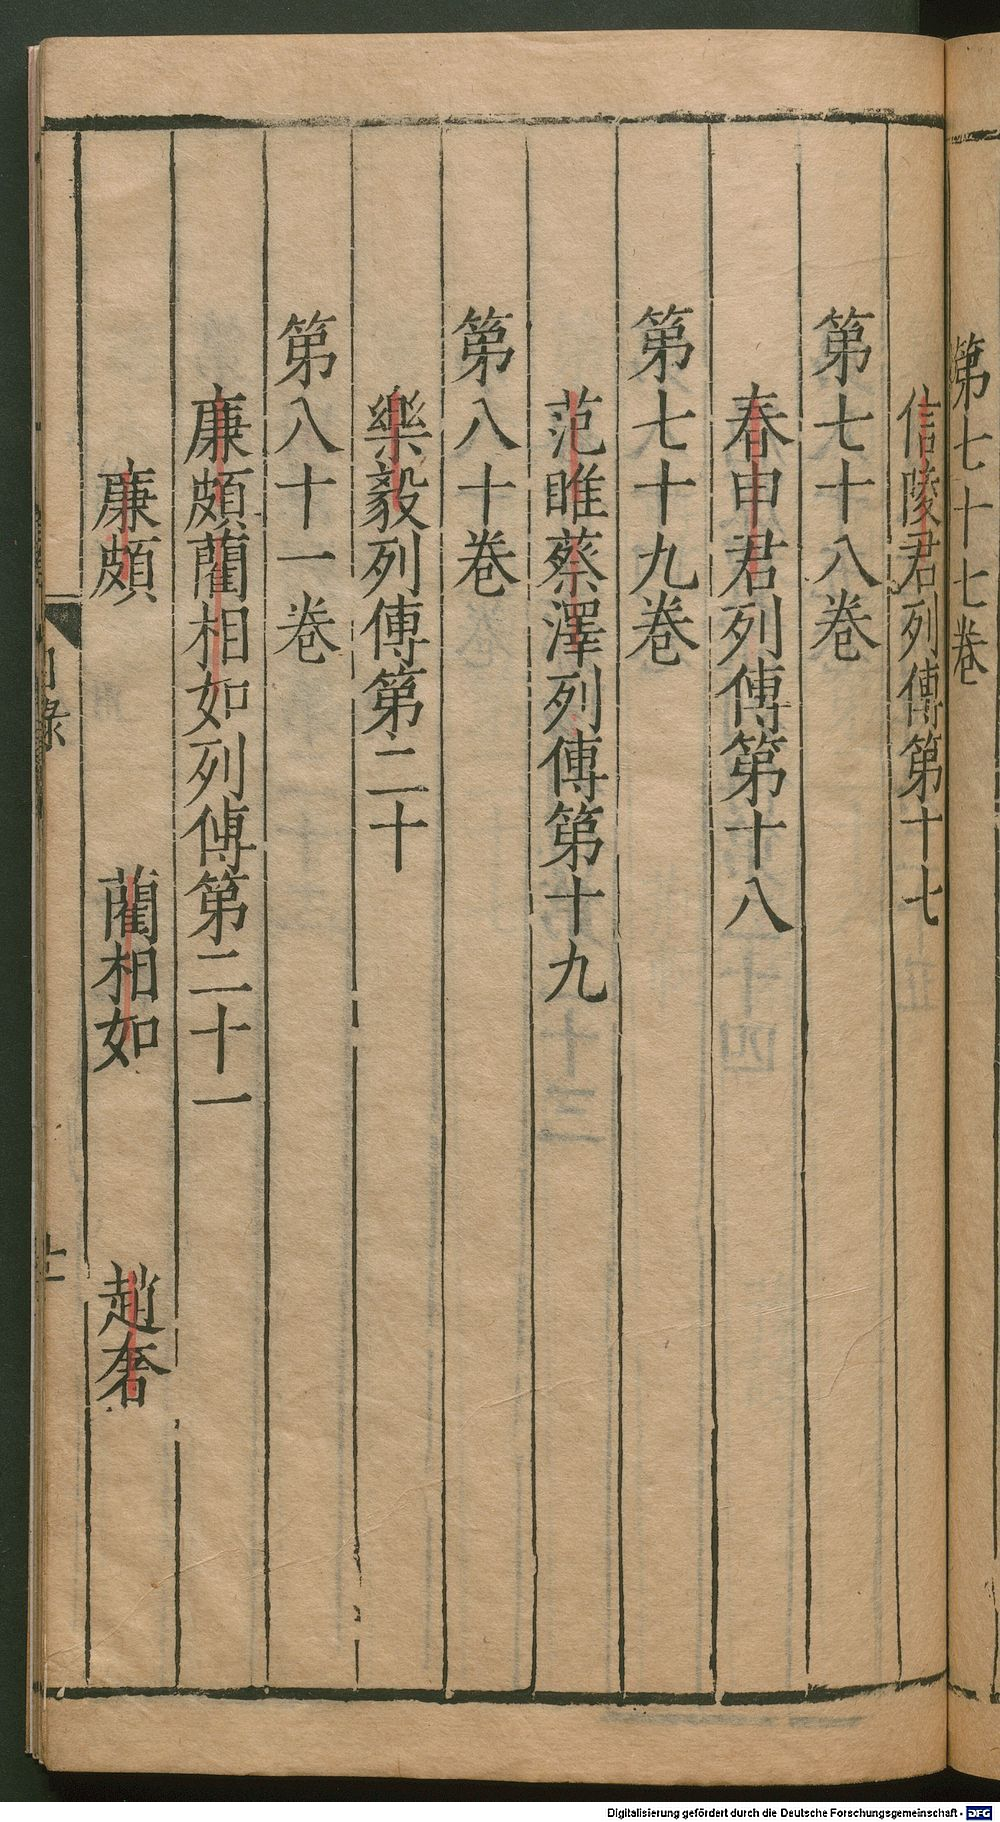 第七十七卷
信陵君列傳第十七
第七十八卷
春申君列傳第十八
第七十九卷
范雎蔡澤列傳第十九
第八十卷
樂毅列傳第二十
第八十一卷
廉頗藺相如列傳第二十一
廉頗 藺相如 趙奢
目錄
Digitalisierung gefördert durch die Deutsche Forschungsgemeinschaft - DFG